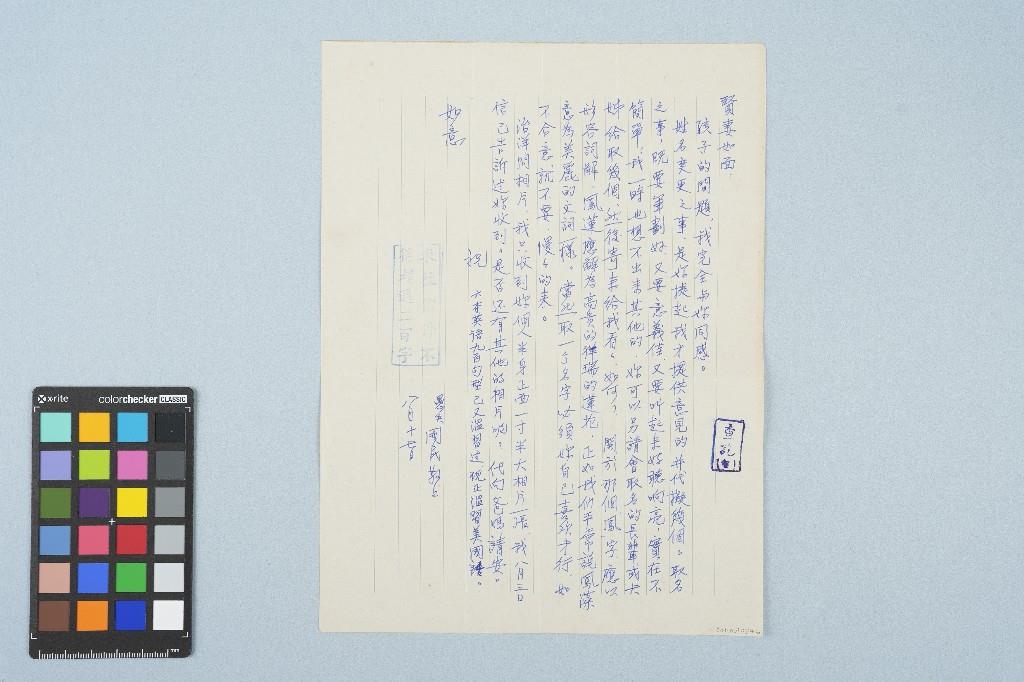 賢妻如面：
孩子的問題，我完全与妳同感。
姓名变更之事，是妳提起我才提供意見的，并代擬幾個。取名
之事，既要筆劃好，又要意義佳，又要叫起来好聽响亮，實在不
簡單。我一時也想不出来其他的，妳可以另請會取名的長輩或大
姊給取幾個，然後寄来給我看看，如何？関於那個鳳字應以
形容詞解，鳳蓮應解為高貴的祥瑞的蓮花，正如我们平常説鳳藻
意為美麗的文詞一樣。當然取一个名字必須妳自己喜欢才行，如
不合意就不要，慢々的来。
海洋問相片，我只收到妳個人半身正面一寸半大相片一張，我八月三日
信己告訴过妳收到。是否还有其他的相片呢？代向爸媽請安。
六本英語九百句型已又溫習过，現正溫習美國語。
祝
如意
愚夫 國民 敬上
八月十
查訖
超過二百字
x-rite
colorchecker CLASSIC
mm